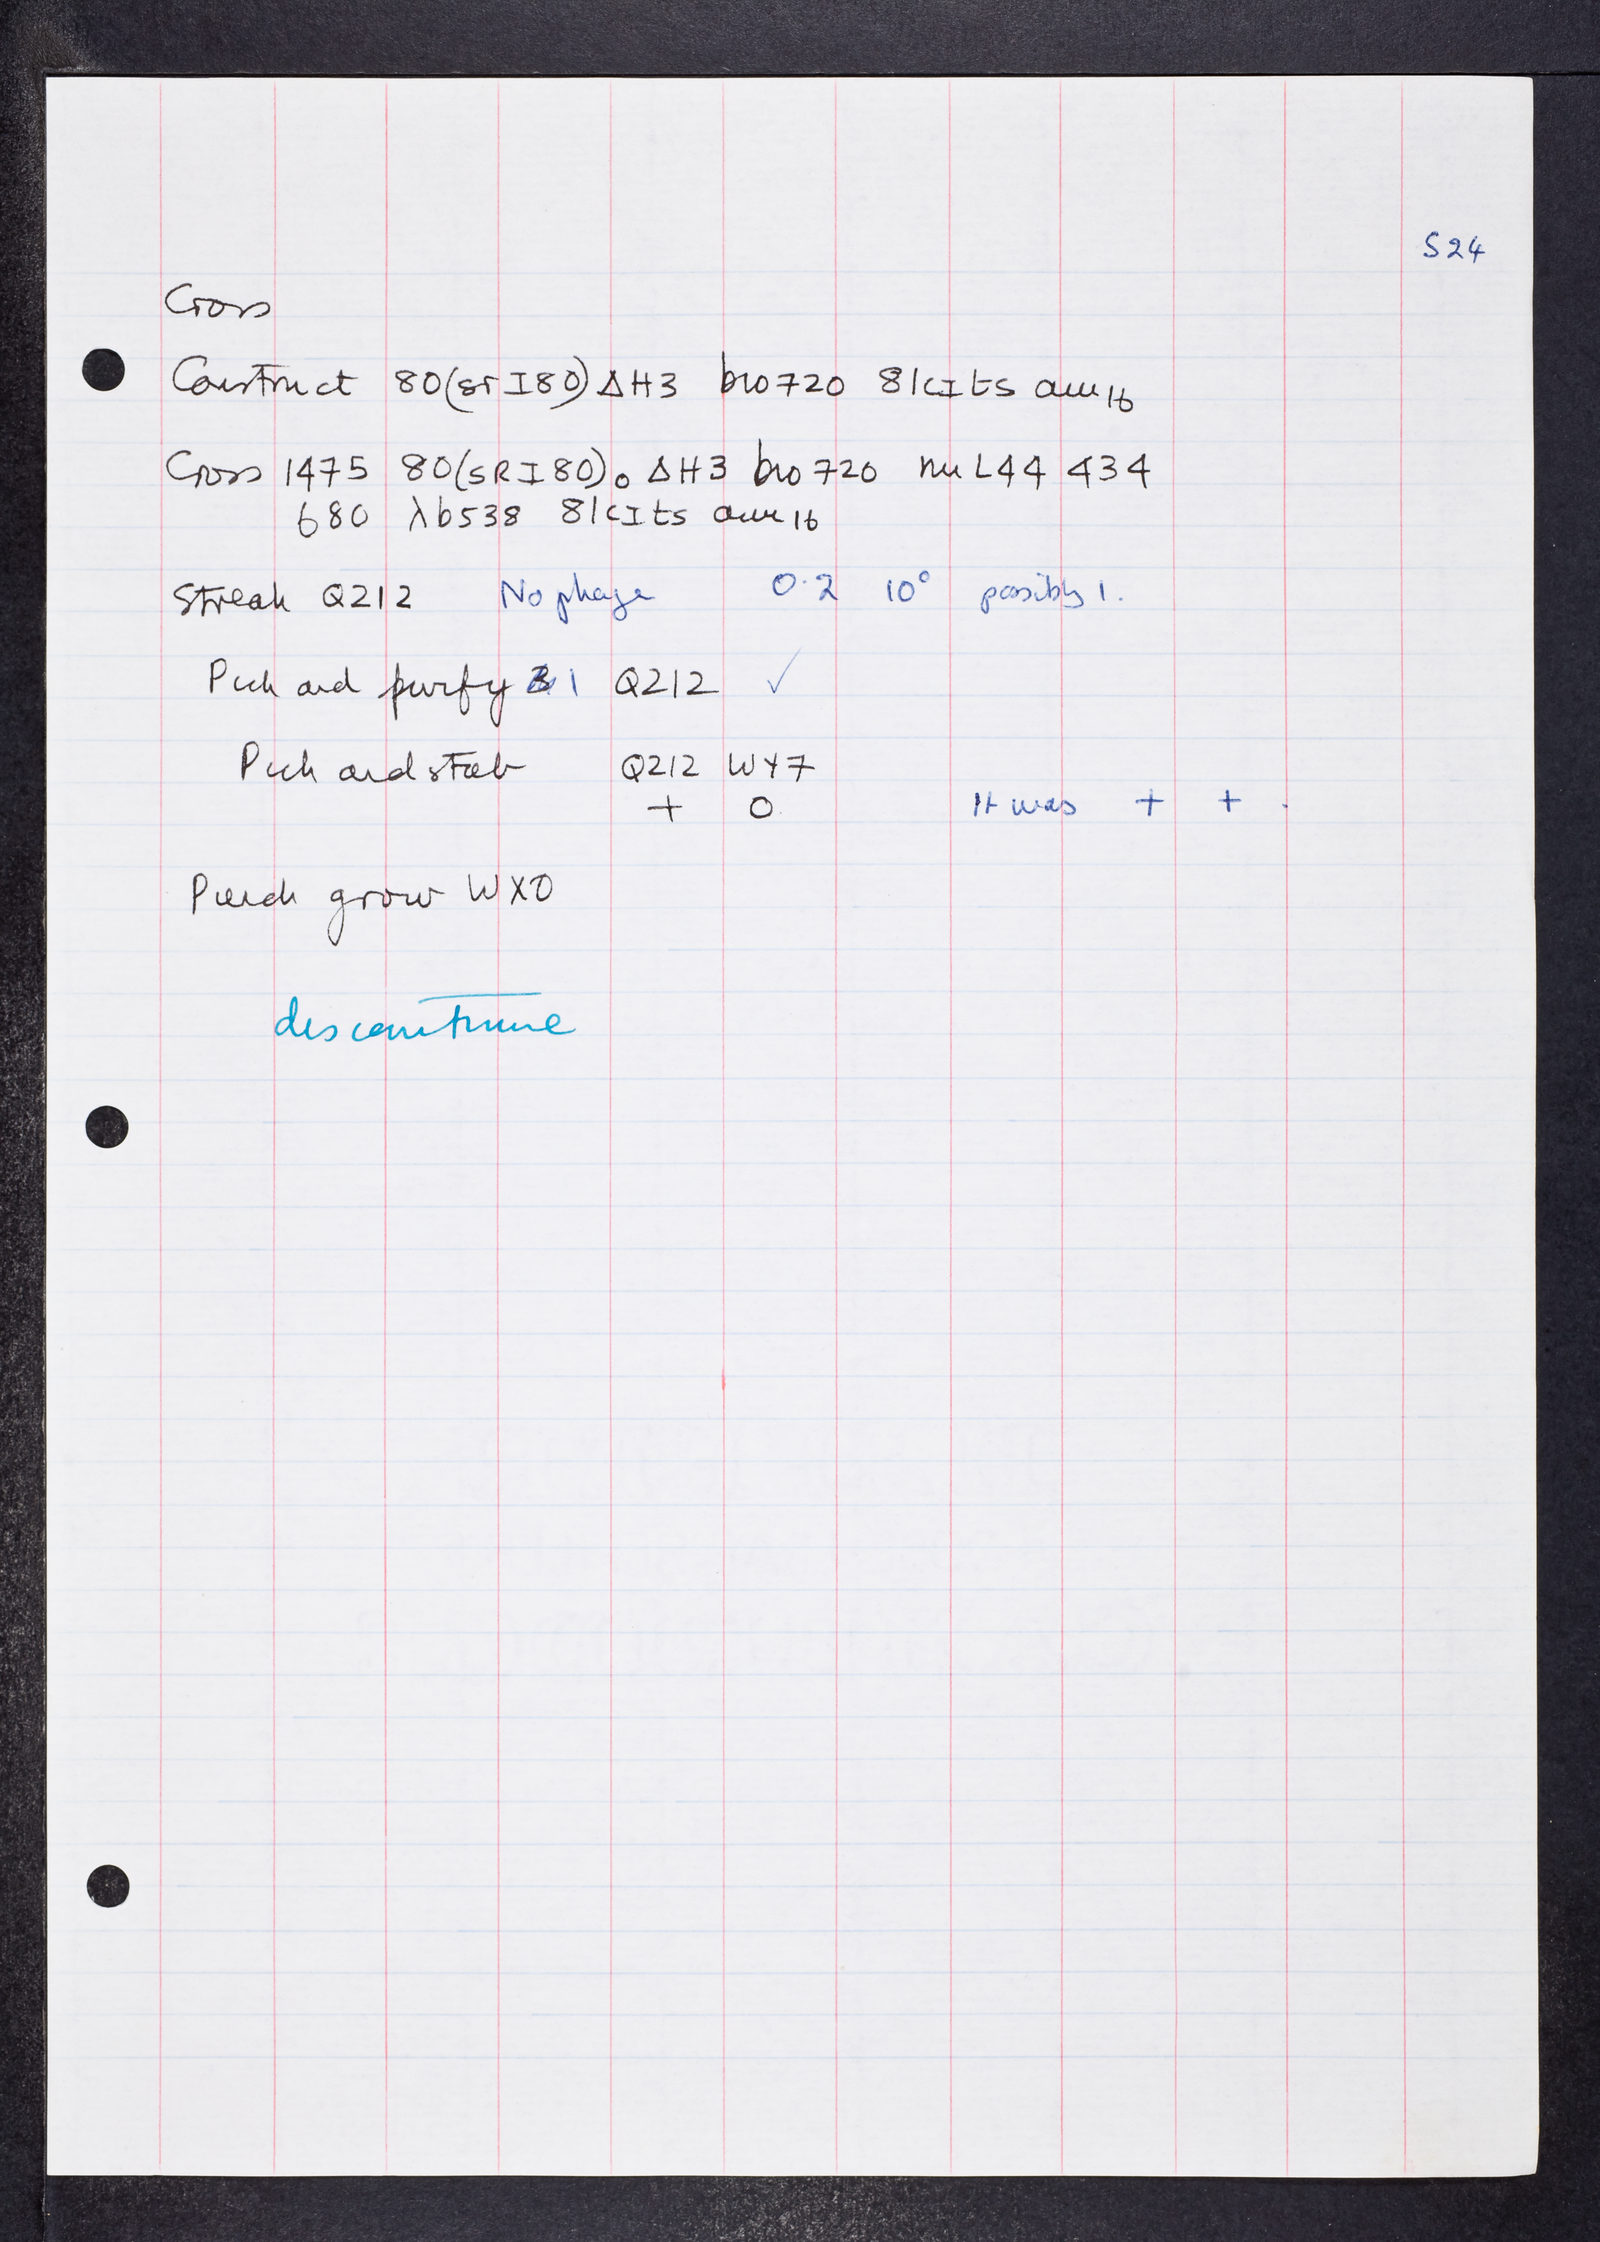 S24
Cross
Construct 80(sr I 80) Δ H3 bio 720 81cI ts am 16
Cross 1475 80(SR I 80)o Δ H3 bio 720 nin L44 434
680 λb538 81cI ts am 16
Streak Q212 No phage 0.2 10° possibly 1.
Pick and purify 1 Q212 ✓
Pick and stab Q212 WY7
+ O It was + +
Pick grow WX0
discontinue